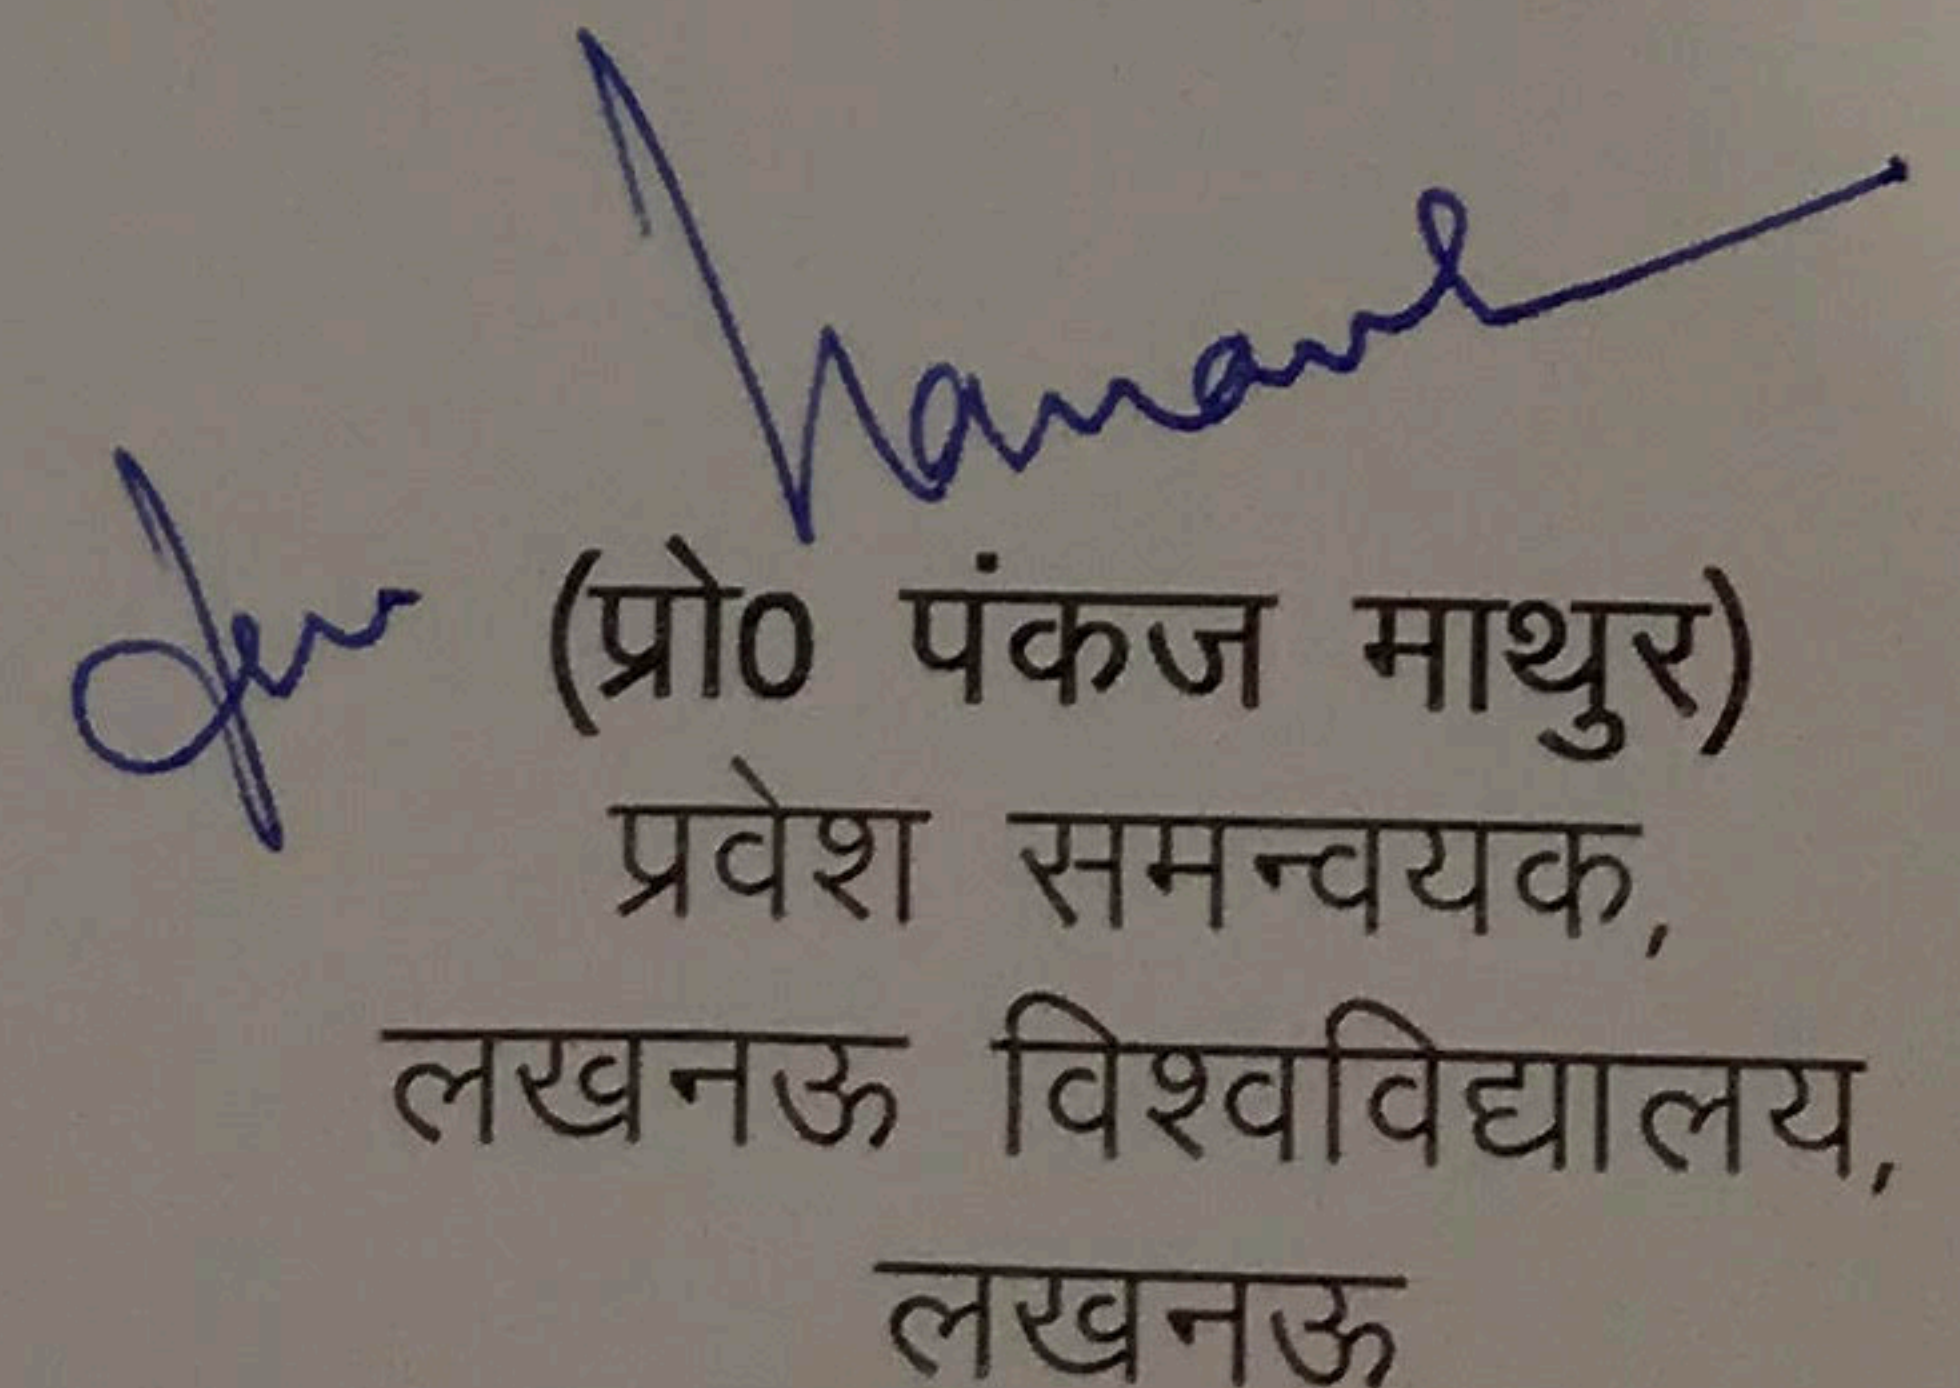 (प्रो0 पंकज माथुर)
प्रवेश समन्वयक,
लखनऊ विश्वविद्यालय,
लखनऊ